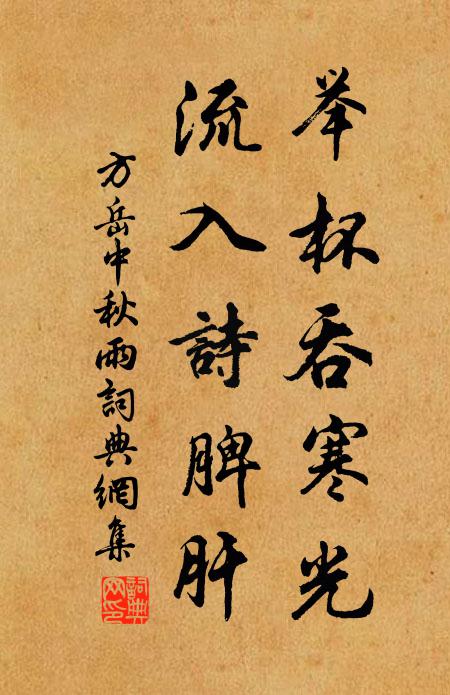 举杯吞寒光
流入詩脾肝
方岳中秋雨詞典網集
詞典網印